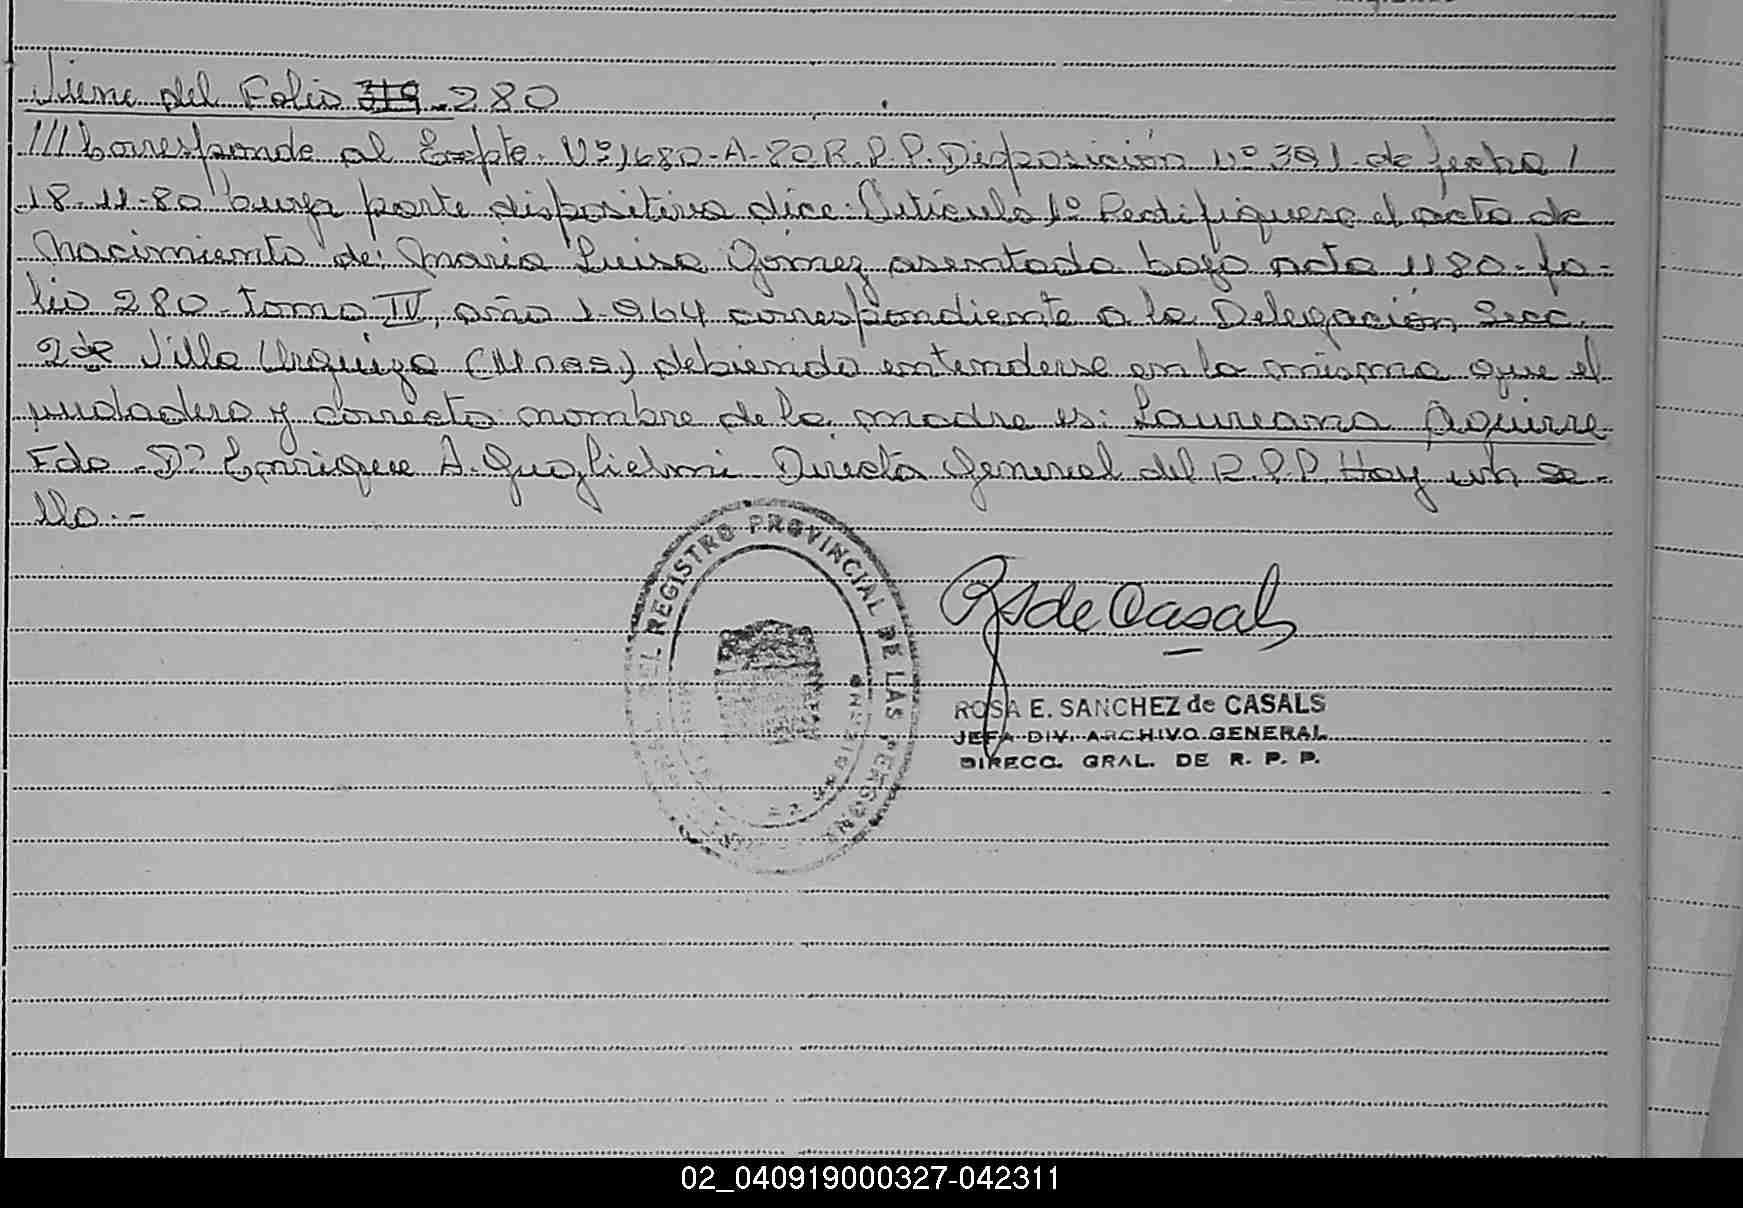 Viene del Folio 319. 280
/// Corresponde al Expte. Nº 1680-A-80 R.P.P. Disposición nº 391 de fecha /
18-11-80 cuya parte dispositiva dice: Artículo 1º Rectifíquese el acta de
nacimiento de: María Luisa Gómez asentada bajo acta 1180 - fo-
lio 280 - tomo IV, año 1.964 correspondiente a la Delegación Secc.
2da Villa Urquiza (Mnas) debiendo entenderse en la misma que el
verdadero y correcto nombre de la madre es: Laureana Aguirre
Fdo. Dº Enrique A. Guglielmi Director General del R.P.P. Hay un se-
llo.-
DEL REGISTRO PROVINCIAL DE LAS PERSONAS
RS de Casals
ROSA E. SANCHEZ de CASALS
JEFA DIV. ARCHIVO GENERAL
DIRECC. GRAL. DE R. P. P.
02_040919000327-042311